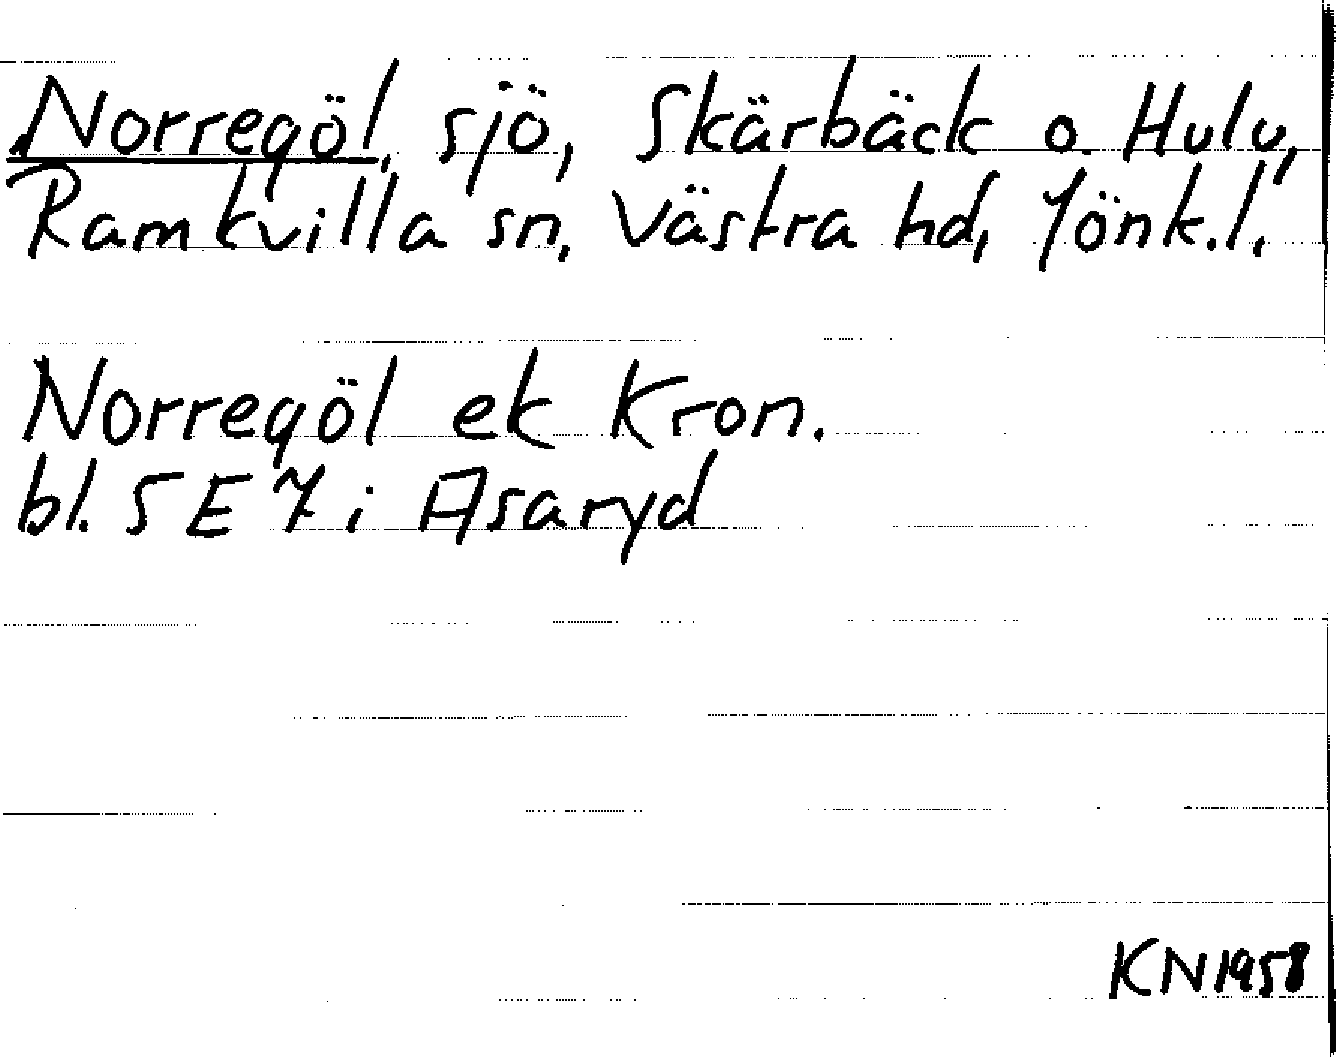 Norregöl, sjö, Skärbäck o. Hulu,
Ramkvilla sn, Västra hd, Jönk.l.
Norregöl ek Kron.
bl. 5 E 7 i Asaryd
KN 1958